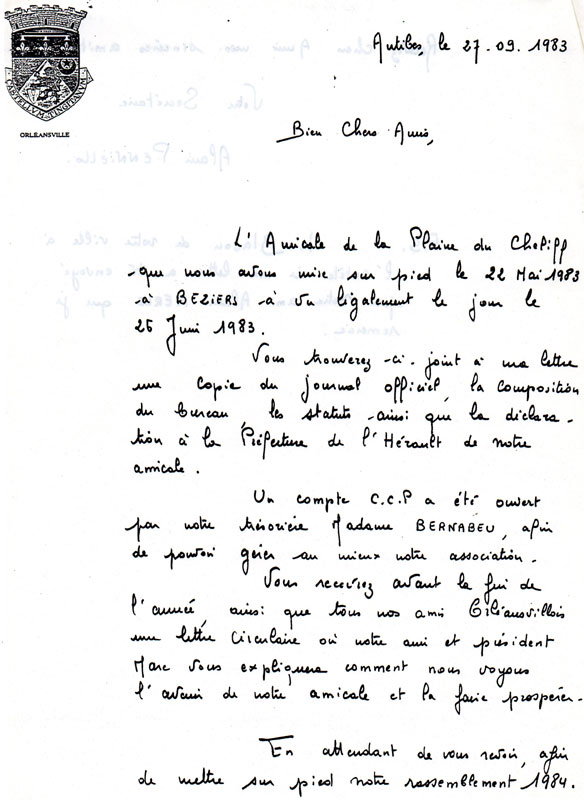 CASTELLUM-TINGITANUM
ORLEANSVILLE
Antibes, le 27.09.1983
Bien Chers Amis,
L'Amicale de la Plaine du Cheliff
que nous avons mise sur pied le 22 Mai 1983
à BEZIERS à vu légalement le jour le
25 Juin 1983.
Vous trouverez -ci-joint à ma lettre
une copie du journal officiel, la composition
du bureau, les statuts ainsi que la déclara-
tion à la Préfecture de l'Hérault de notre
amicale.
Un compte C.C.P a été ouvert
par notre trésorière Madame BERNABEU, afin
de pouvoir gérer au mieux notre association.
Vous recevrez avant la fin de
l'année, ainsi que tous nos ami Orléansvillois
une lettre circulaire où notre ami et président
Marc vous expliquera comment nous voyons
l'avenir de notre amicale et la faire prospérer.
En attendant de vous revoir, afin
de mettre sur pied notre rassemblement 1984.